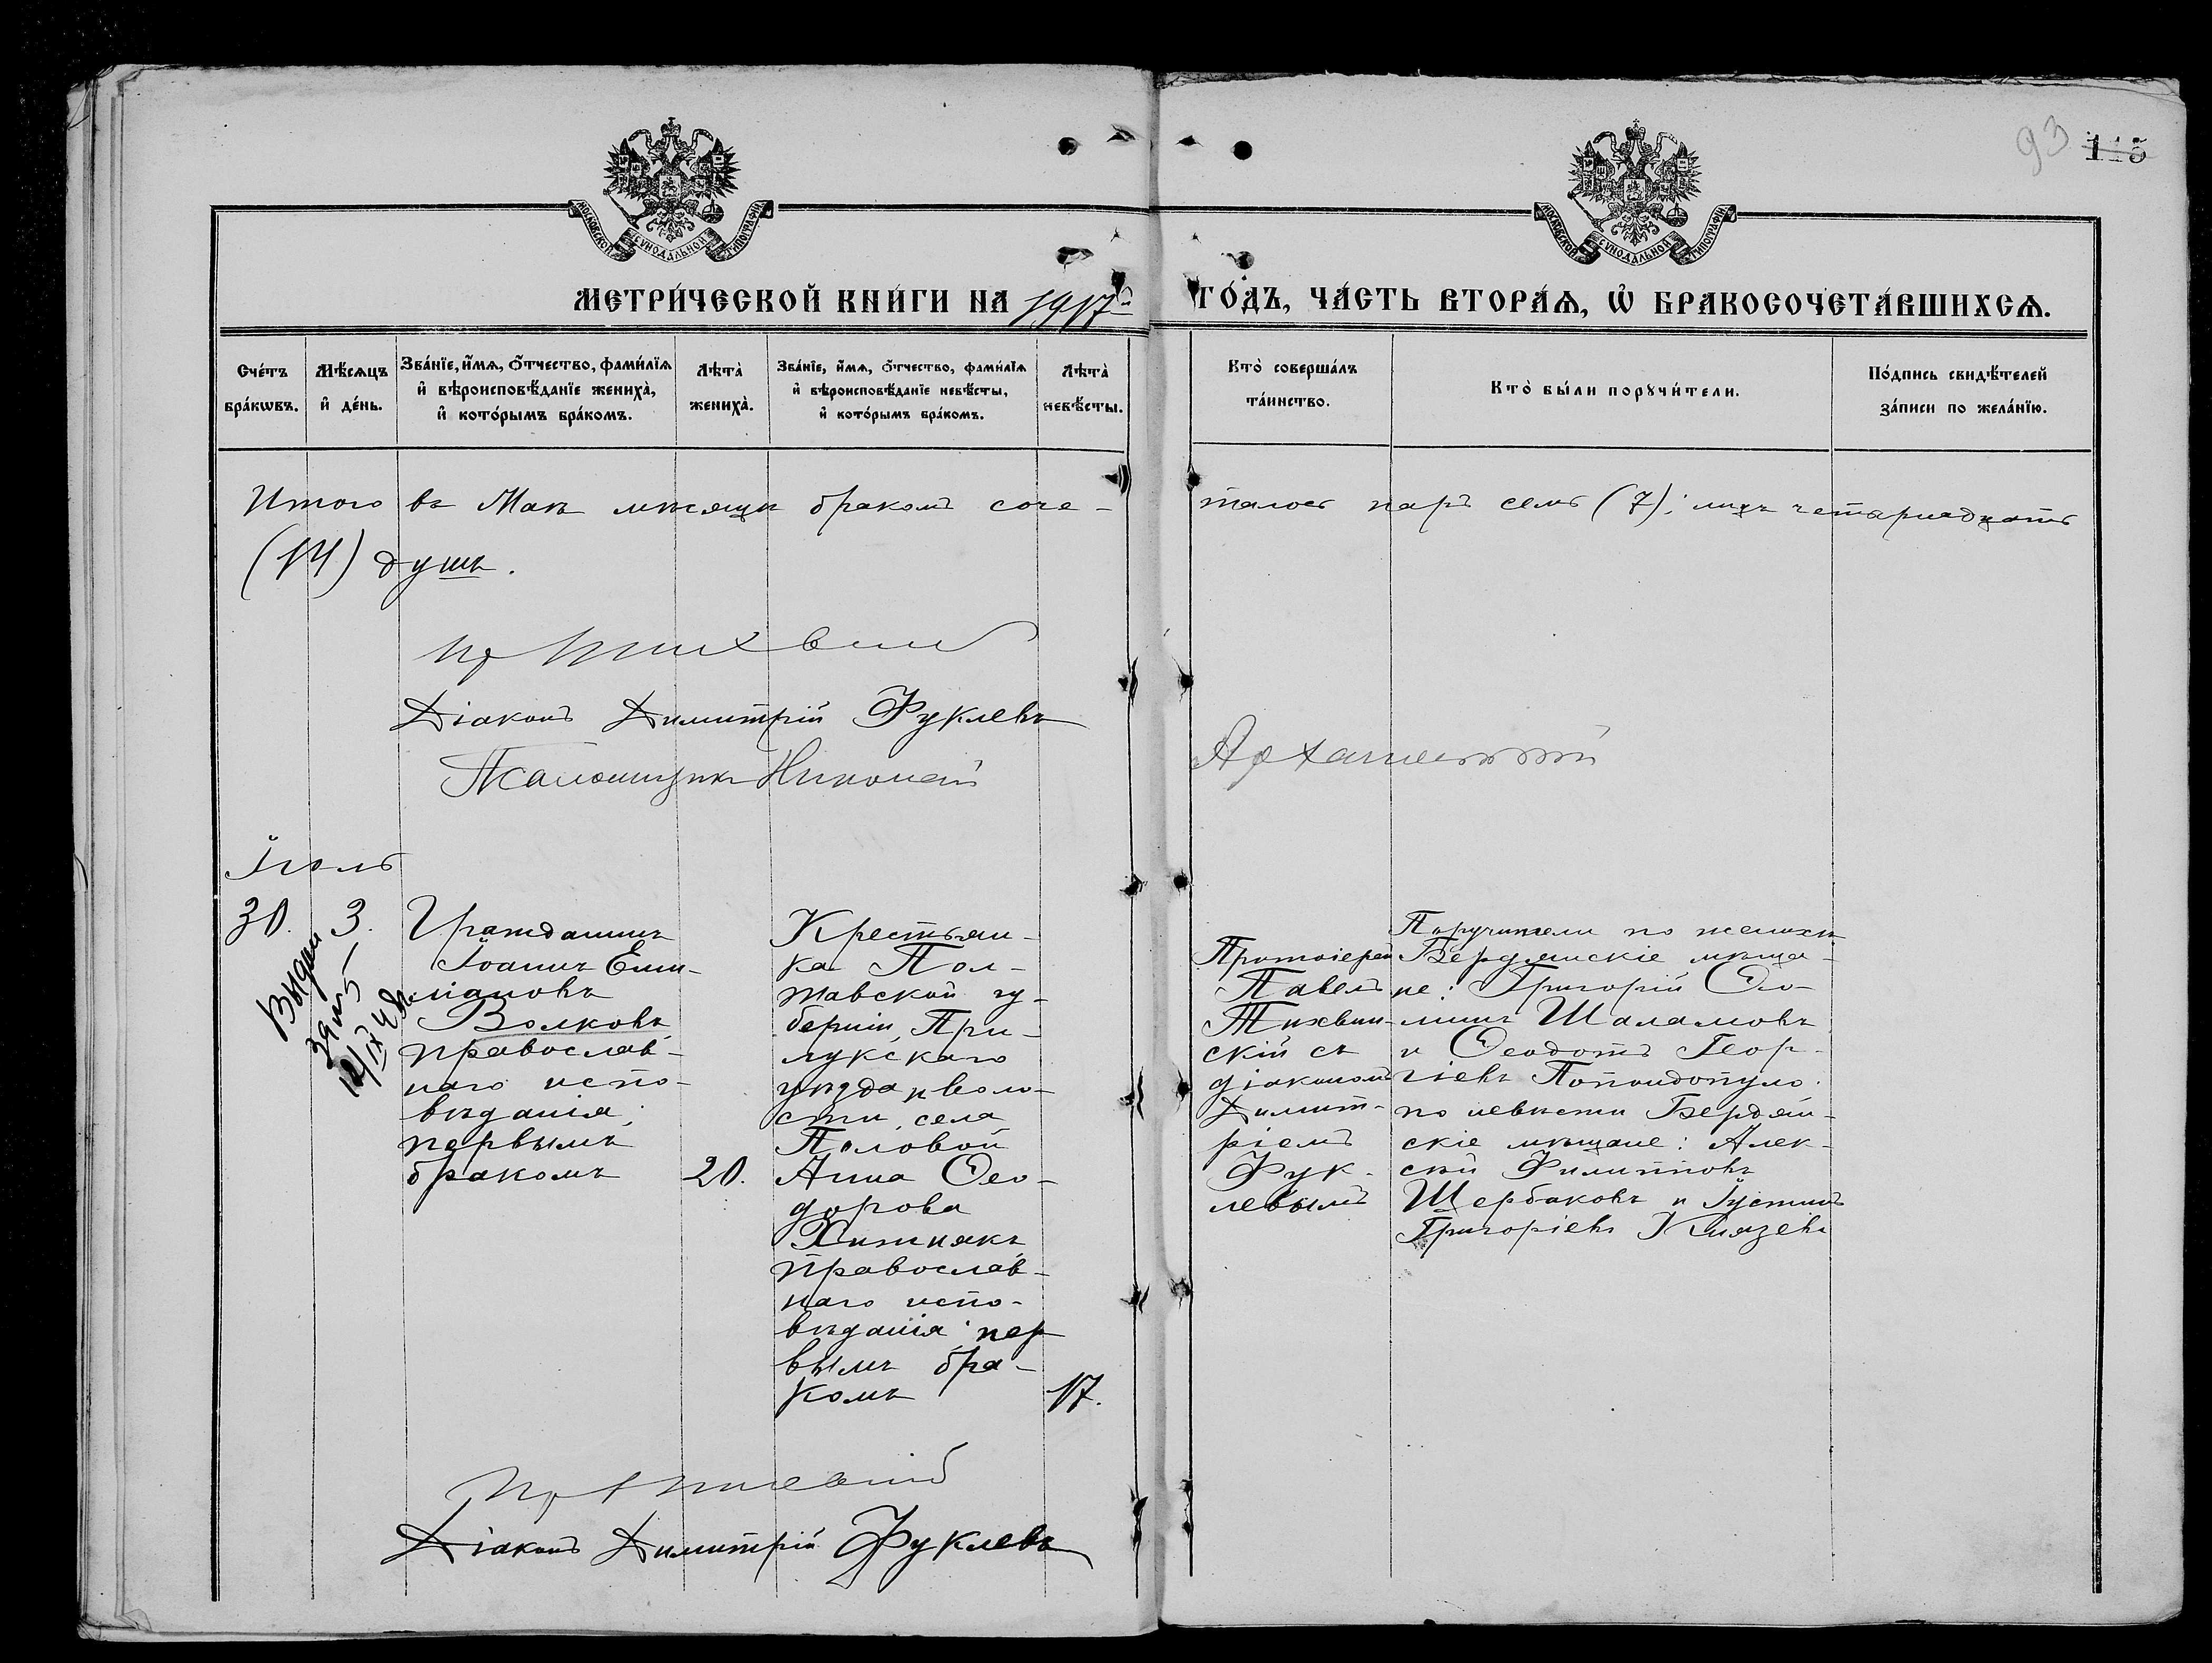 93 115
МОСКОВСКОЙ СѴНОДАЛЬНОЙ ТИПОГРАФІИ
МОСКОВСКОЙ СѴНОДАЛЬНОЙ ТИПОГРАФІИ
МЕТРИ́ЧЕСКОЙ КНИ́ГИ НА 1917й ГО́ДЪ, ЧА́СТЬ ВТОРА́Ѧ, Ѽ БРАКОСОЧЕТА́ВШИХСѦ.
Сче́тъ
бра́кѡвъ.
Мѣ́сѧцъ
и҆ де́нь.
Зва́нїе, и҆́мѧ, ѻ҆́тчество, фами́лїѧ
и҆ вѣроисповѣ́данїе жениха̀,
и҆ кото́рымъ бра́комъ.
Лѣта̀
жениха̀.
Зва́нїе, и҆́мѧ, ѻ҆́тчество, фами́лїѧ
и҆ вѣроисповѣ́данїе невѣ́сты,
и҆ кото́рымъ бра́комъ.
Лѣта̀
невѣ́сты.
Кто̀ соверша́лъ
та́инство.
Кто̀ бы́ли порꙋчи́тели.
По́дпись свидѣ́телей
за́писи по жела́нїю.
Итого въ Маѣ мѣсяцѣ бракомъ соче-
талось паръ семь (7); лицъ четырнадцать
(14) душъ.
Діаконъ Димитрій Фуклевъ
Псаломщикъ Николай Архангельскій
Іюль
30. 3.
Выдан
12/IX
Гражданинъ
Іоаннъ Еми-
ліановъ
Волковъ
православ-
наго испо-
вѣданія;
первымъ
бракомъ
20.
Крестьян-
ка Пол-
тавской гу-
берніи, При-
лукскаго
уѣзда и воло-
сти, села
Половой
Анна Ѳео-
дорова
Хижнякъ
православ-
наго испо-
вѣданія; пер
вымъ бра-
комъ
17.
Протоіерей
Павелъ
Тихвин-
скій съ
діакономъ
Димит-
ріемъ
Фук-
левымъ
Поручители по женихѣ
Бердянскіе мѣща-
не: Григорій Ѳо-
минъ Шаламовъ
и Ѳеодотъ Геор-
гіевъ Попандопуло.
по невѣсти Бердян-
скіе мѣщане: Алек-
сѣй Филипповъ
Щербаковъ и Іустинъ
Григоріевъ Князевъ
Діаконъ Димитрій Фуклевъ